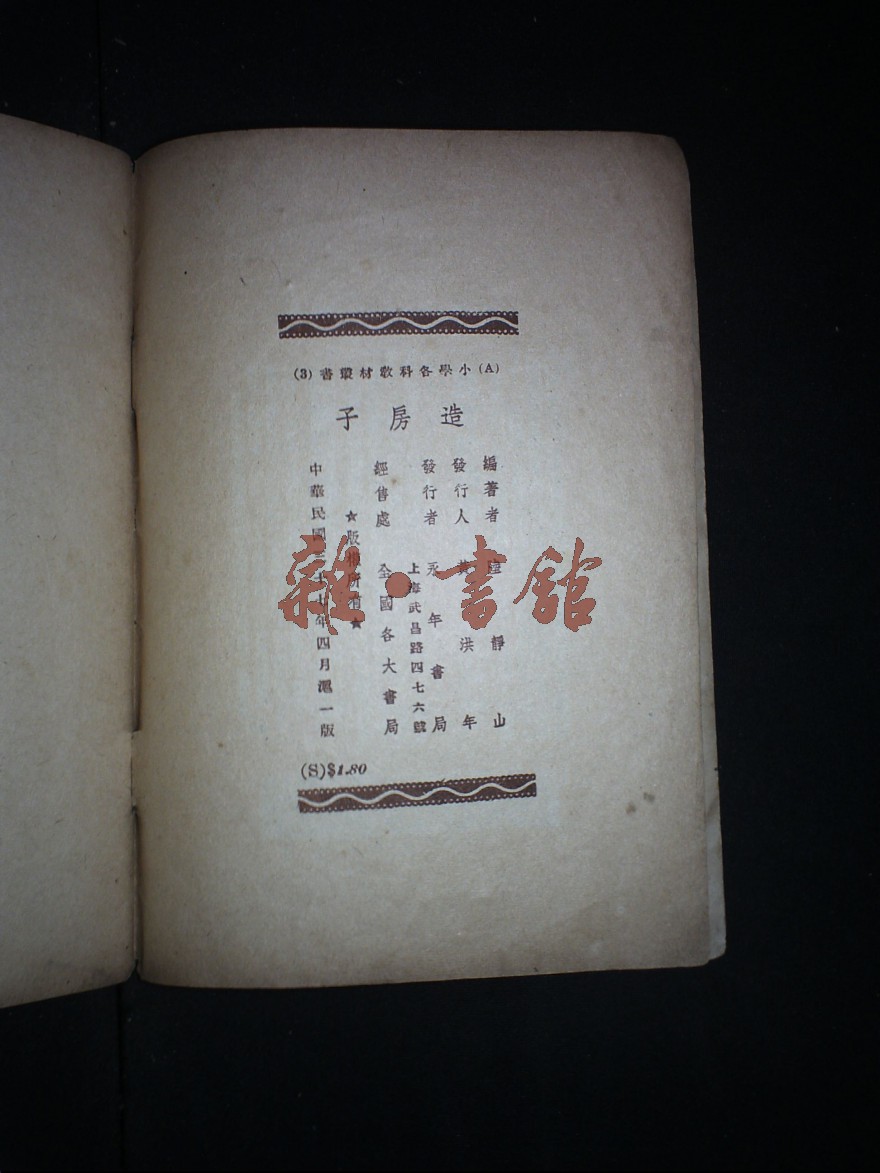 (A)小學各科教材叢書(3)
造房子
編著者 陸靜山
發行人 洪年
發行者 永年書局
上海武昌路四七六號
經售處 全國各大書局
★版權所有★
中華民國三十七年四月滬一版
(S)$1.80
雜·書館